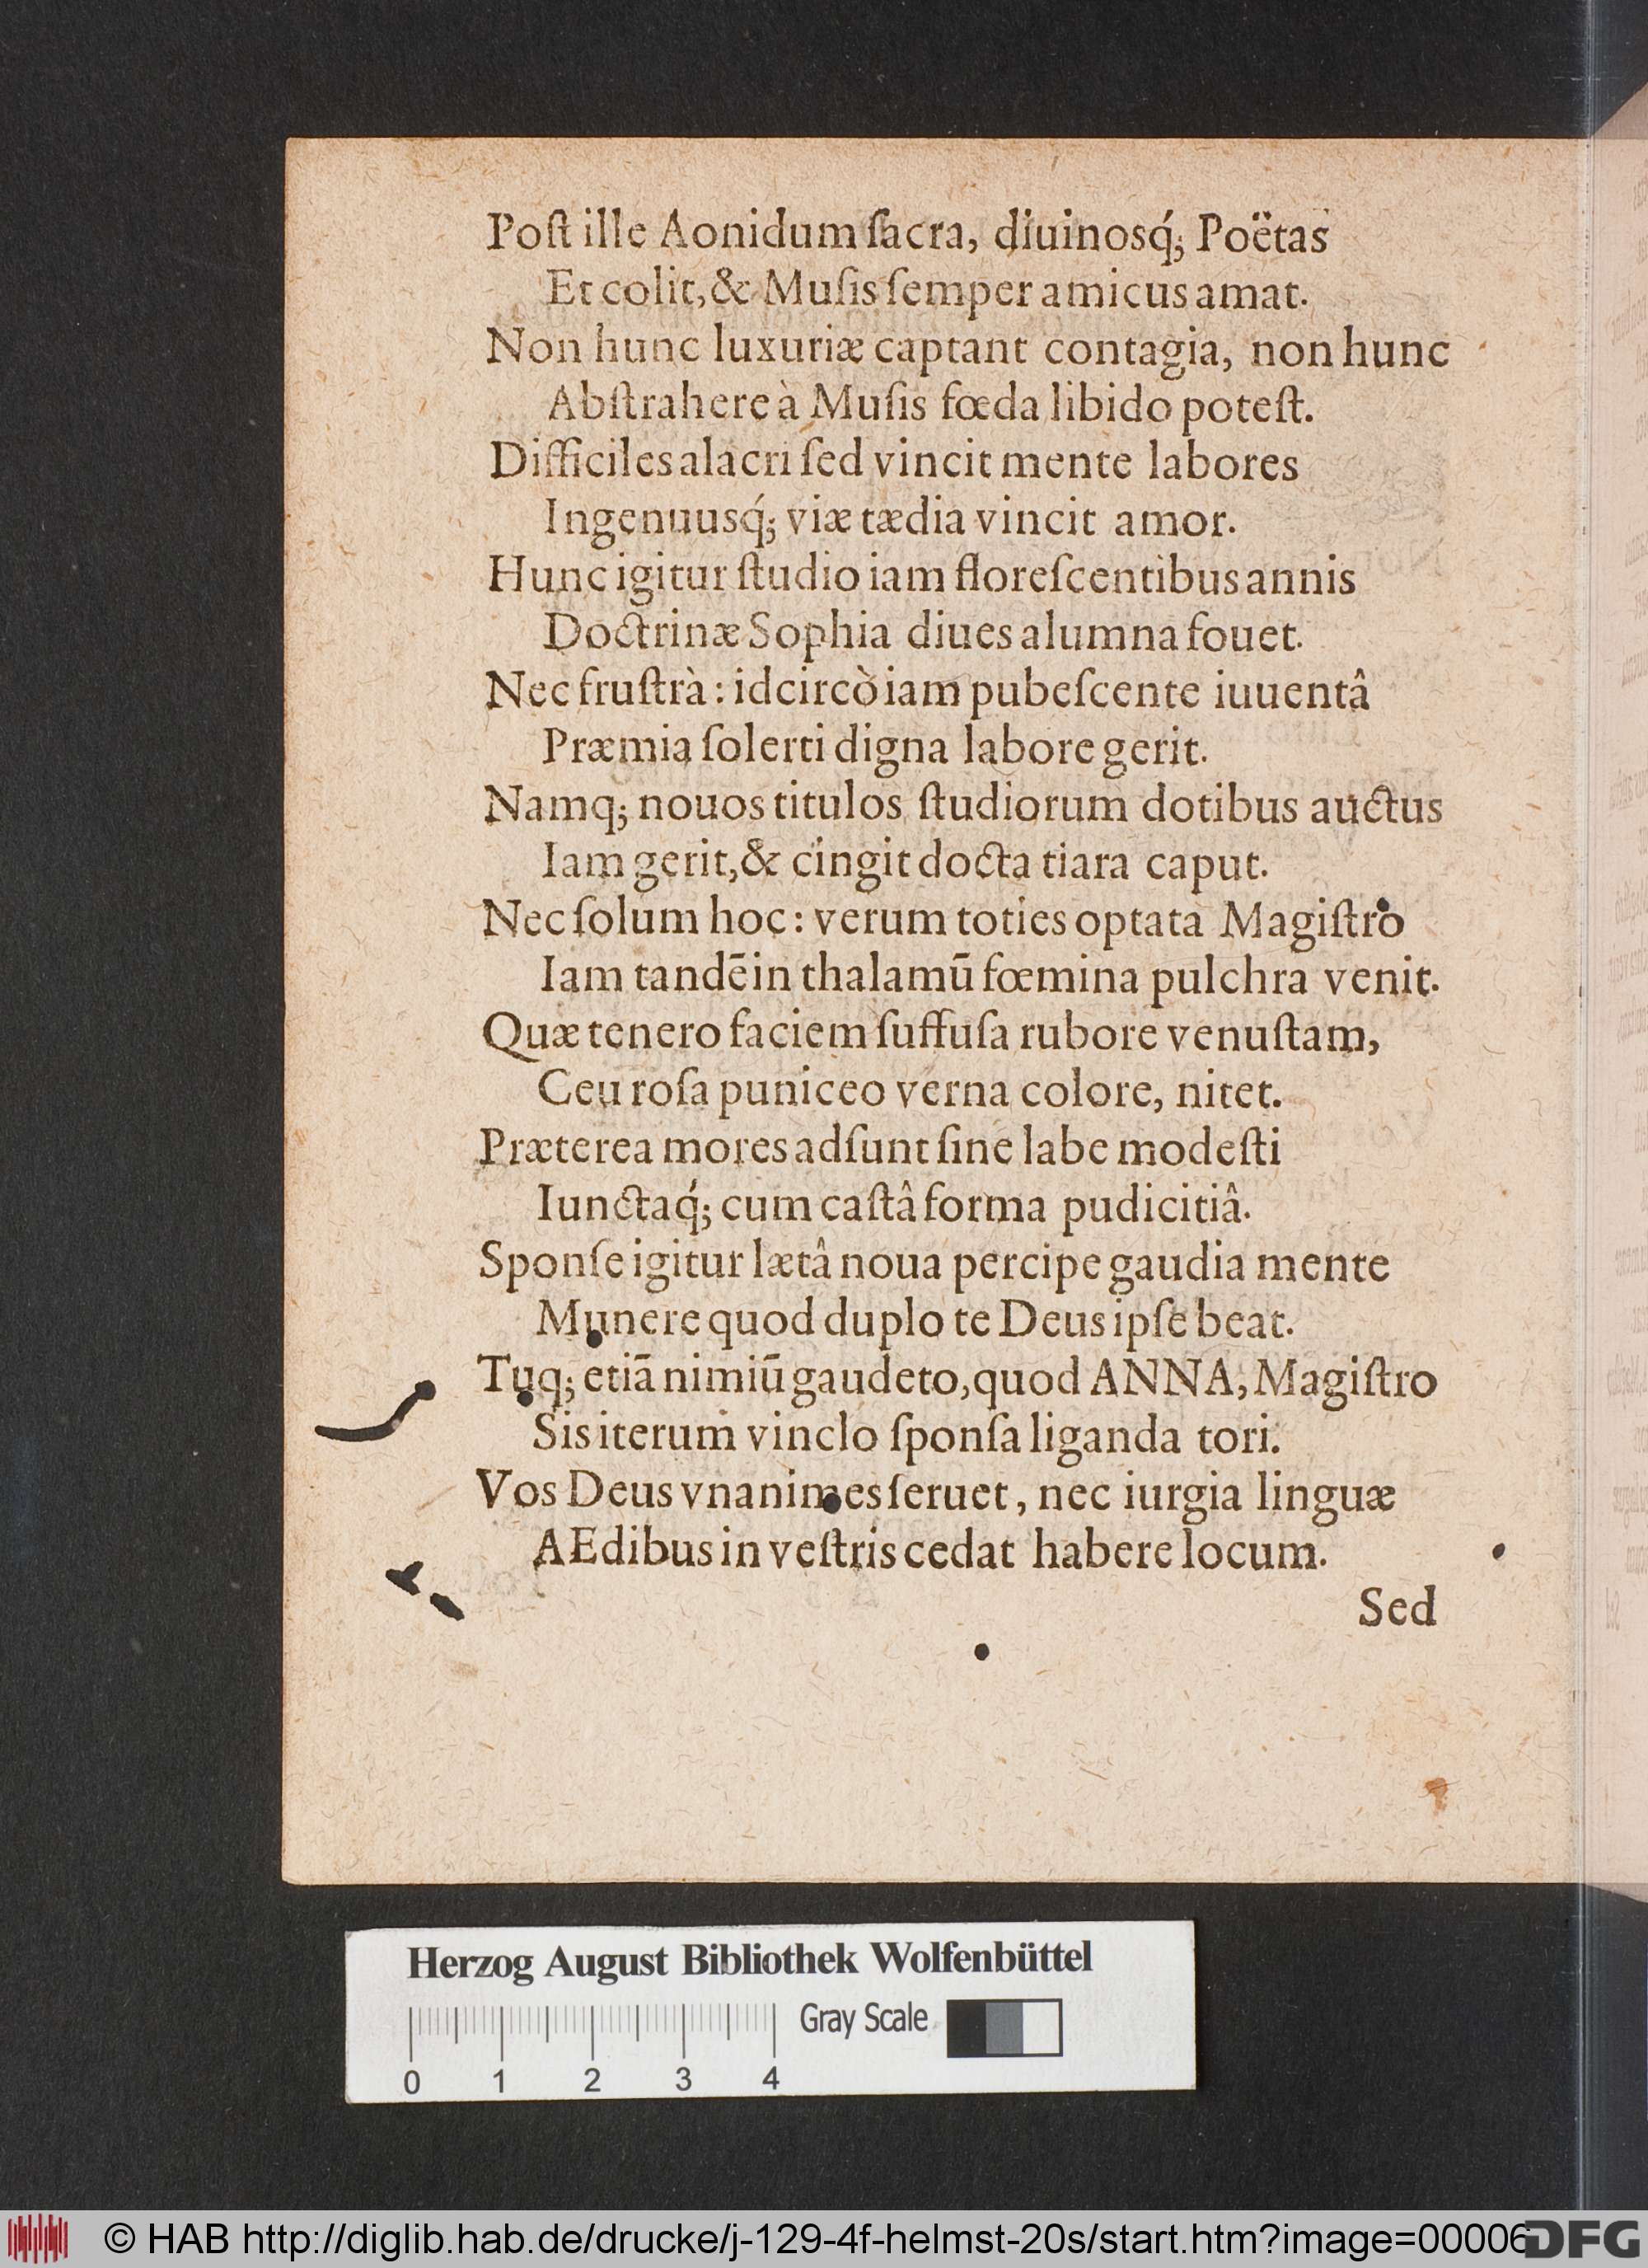 Poſt ille Aonidum ſacra, diuinosq́; Poëtas
Et colit, & Muſis ſemper amicus amat.
Non hunc luxuriæ captant contagia, non hunc
Abſtrahere à Muſis fœda libido poteſt.
Difficiles alacri ſed vincit mente labores
Ingenuusq́; viæ tædia vincit amor.
Hunc igitur ſtudio iam floreſcentibus annis
Doctrinæ Sophia diues alumna fouet.
Nec fruſtrà: idcircò iam pubeſcente iuuentâ
Præmia ſolerti digna labore gerit.
Namq; nouos titulos ſtudiorum dotibus auctus
Iam gerit, & cingit docta tiara caput.
Nec ſolum hoc: verum toties optata Magiſtro
Iam tandē in thalamū fœmina pulchra venit.
Quæ tenero faciem ſuffuſa rubore venuſtam,
Ceu roſa puniceo verna colore, nitet.
Præterea mores adſunt ſine labe modeſti
Iunctaq́; cum caſtâ forma pudicitiâ.
Sponſe igitur lætâ noua percipe gaudia mente
Munere quod duplo te Deus ipſe beat.
Tuq; etiā nimiū gaudeto, quod ANNA, Magiſtro
Sis iterum vinclo ſponſa liganda tori.
Vos Deus vnanimes ſeruet, nec iurgia linguæ
AEdibus in veſtris cedat habere locum.
Sed
Herzog August Bibliothek Wolfenbüttel
Gray Scale
0 1 2 3 4
© HAB http://diglib.hab.de/drucke/j-129-4f-helmst-20s/start.htm?image=00006
DFG